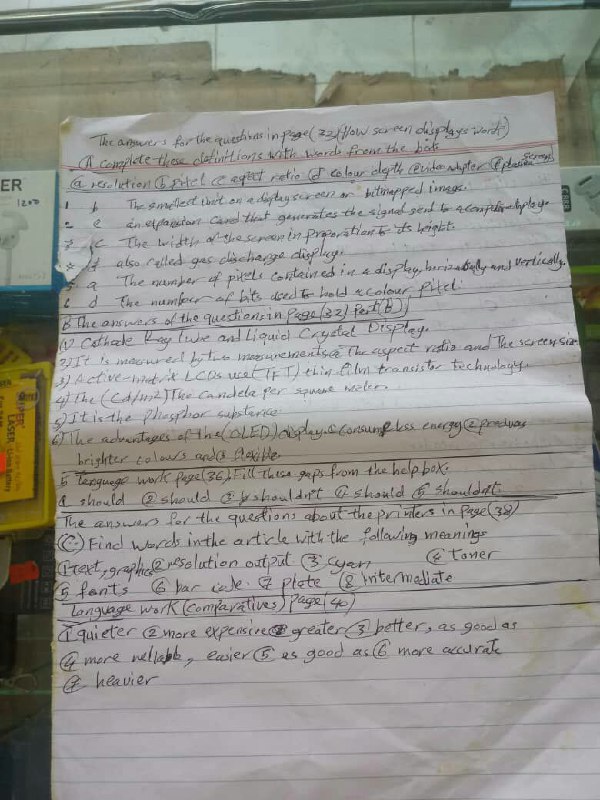 The answers for the questions in page (33) How screen displays work)
A complete these definitions with words from the box
a resolution b pixel c aspect ratio d colour depth e video adapter f plasma screen
1 b The smallest unit on a display screen or bitmapped image.
2 e an expansion card that generates the signal sent to a computer display
3 c The width of the screen in proporation to its height.
f also called gas discharge display.
5 a The number of pixels contained in a display, horizontally and vertically.
6 d The number of bits used to hold a colour pixel.
B The answers of the questions in page (32) Part (B)
(1) Cathode Ray Tube and Liquid Crystal Display.
2) It is measured by two measurements The aspect ratio and The screen size
3) Active-matrix LCDs use (TFT) thin film transistor technology.
4) The (Cd/m2) The candela per square meter.
5) It is the Phosphor substance
6) The advantages of the (OLED) display consumes less energy 2 produces
brighter colours and 3 flexible.
5 language work page (36) Fill these gaps from the help box.
1 should 2 should 3 shouldn't 4 should 5 shouldn't.
The answers for the questions about the printers in page (38)
(C) Find words in the article with the following meanings
1 text, graphics 2 resolution output 3 cyan 4 Toner
5 fonts 6 bar code 7 plate 8 intermediate
Language work (comparatives) page (40)
1 quieter 2 more expensive greater 3 better, as good as
4 more reliable, easier 5 as good as 6 more accurate
7 heavier
ER
1200
LASER